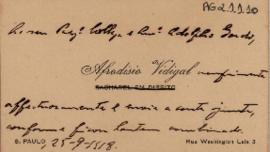 AG2.1.10
Ao seu Collega e Am. Adolpho Gordo,
Afrodisio Vidigal
BACHAREL EM DIREITO
affectuosamente e envia a carta junta,
conforme ficou hontem combinado.
S. PAULO, 25-9-1918.
Rua Washington Luis 3